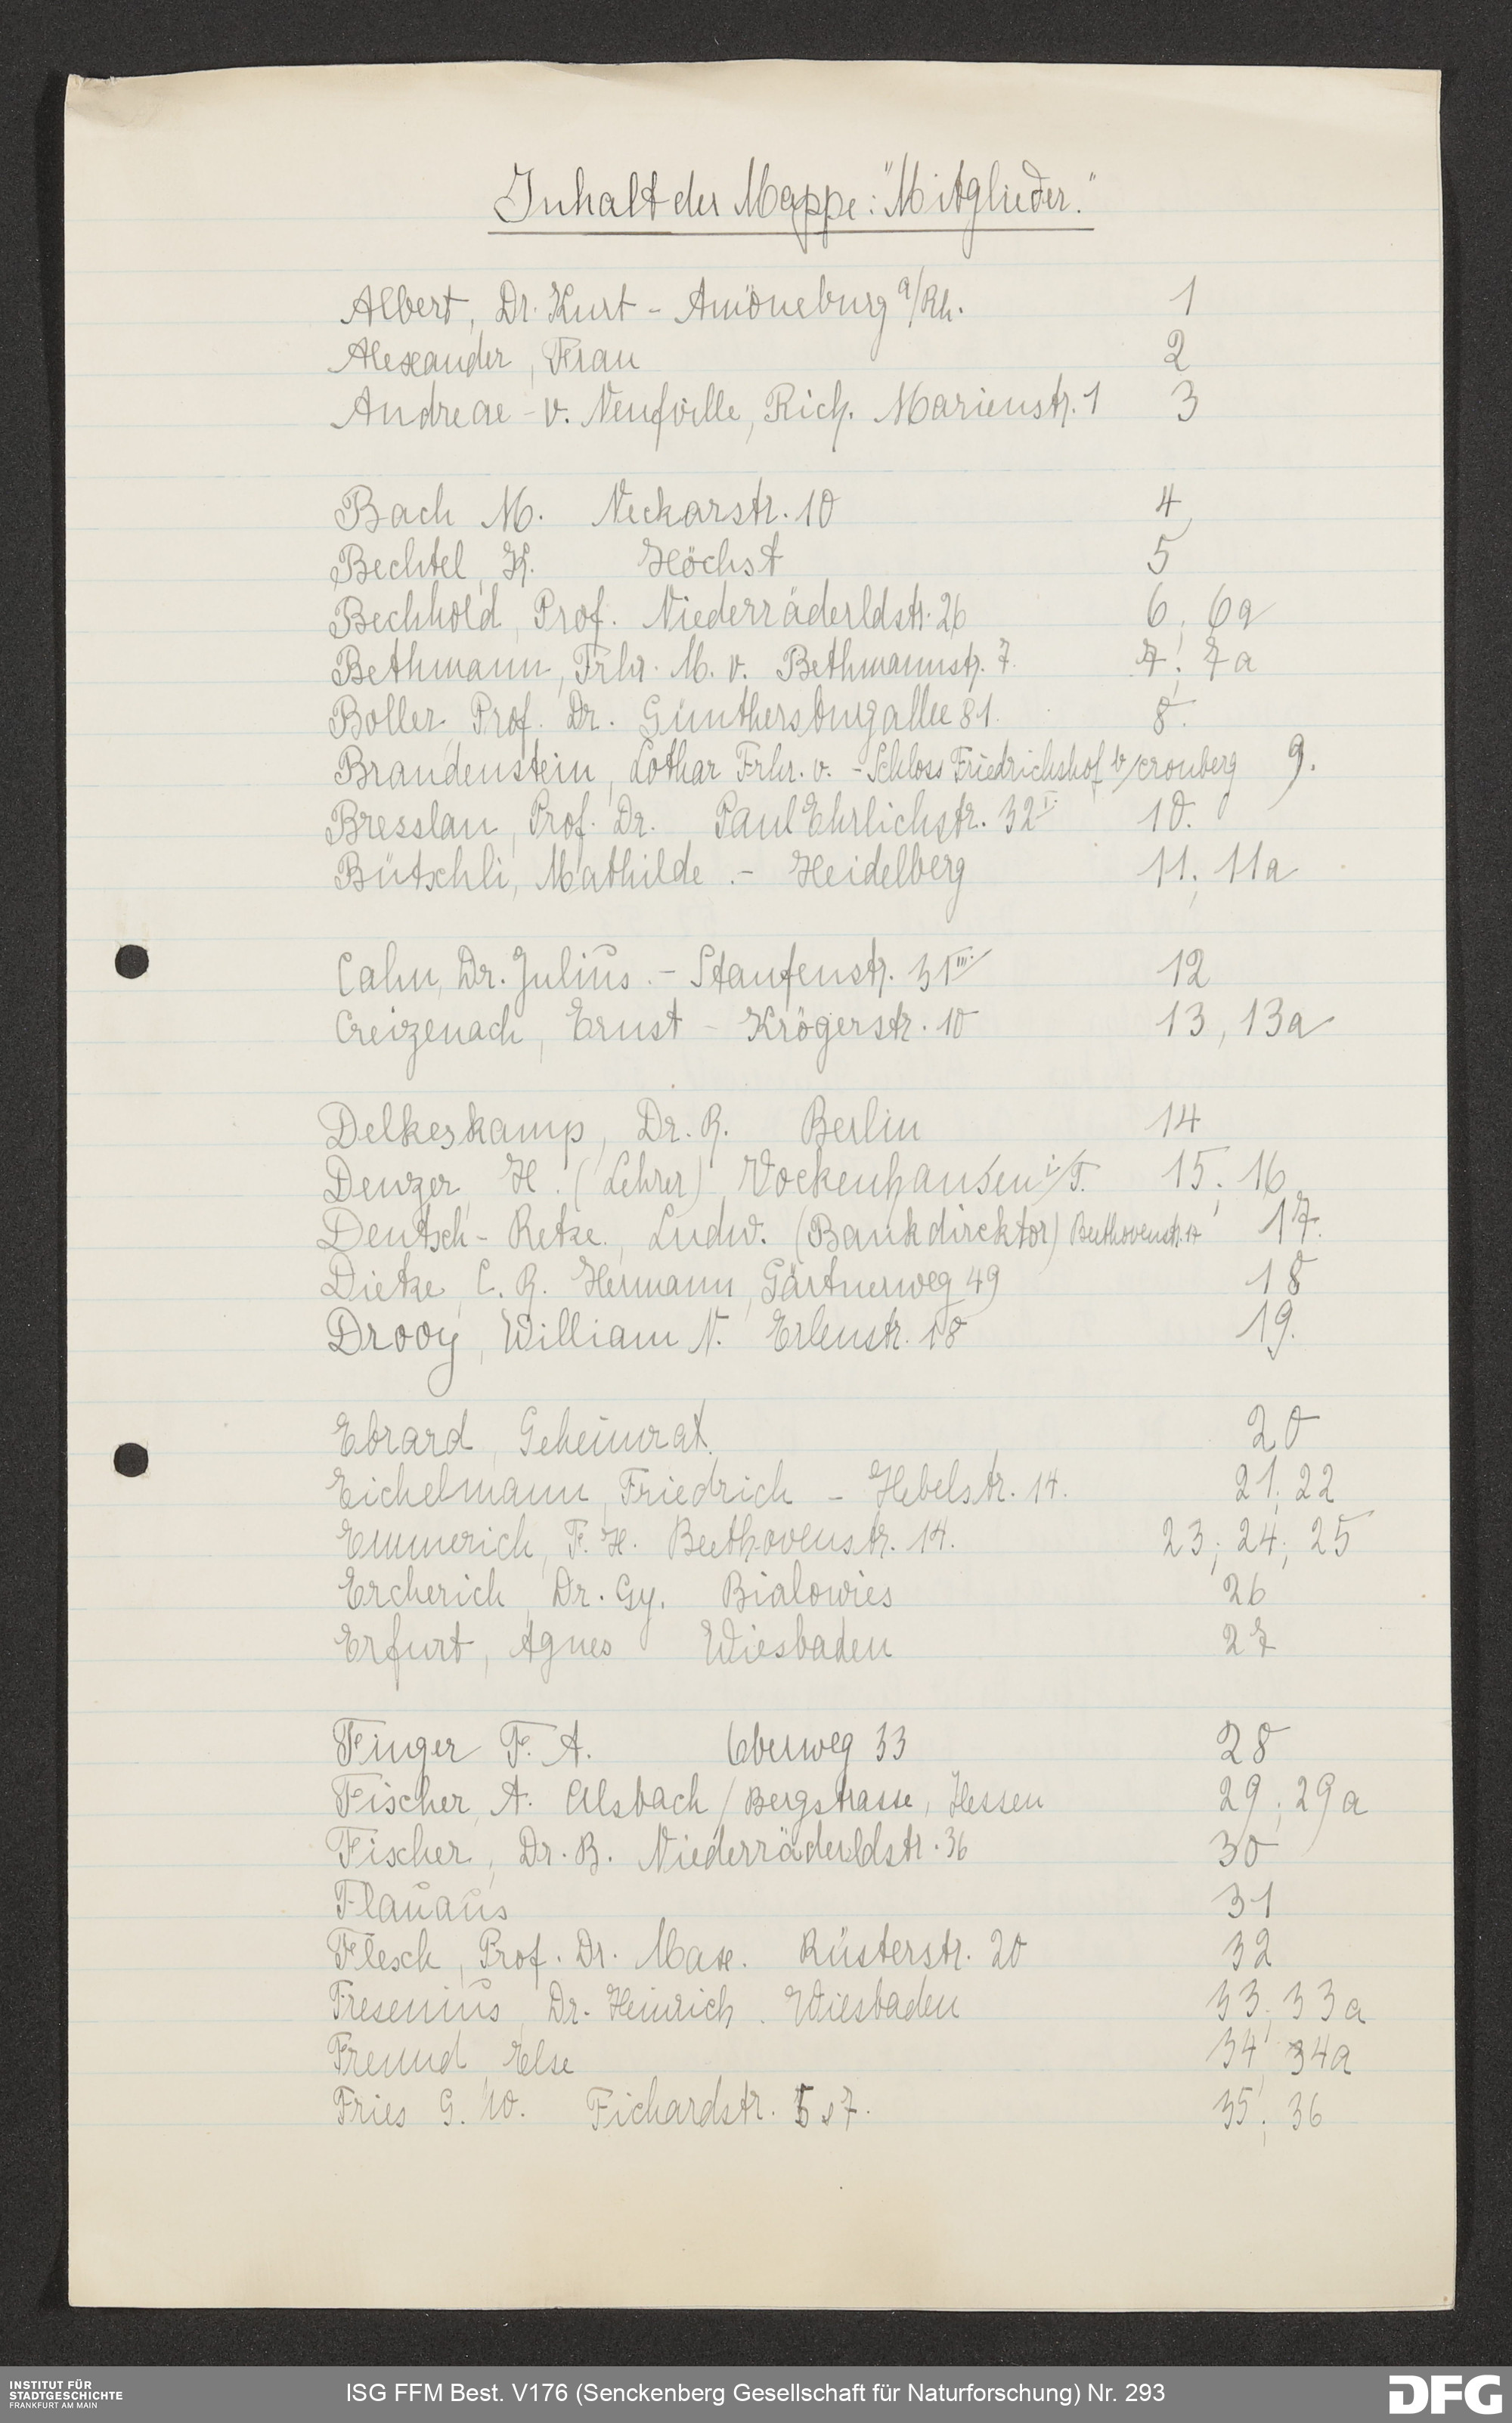 Inhalt der Mappe: "Mitglieder."
Albert, Dr. Kurt - Amöneburg a/Rh. 1
Alexander, Frau 2
Andreae - v. Neufville, Rich. Marienstr. 1 3
Bach M. Neckarstr. 10 4
Bechtel, K. Höchst 5
Bechhold, Prof. Niederräderldstr. 26 6, 6a
Bethmann, Frhr. M. v. Bethmannstr. 7. 7, 7a
Boller, Prof. Dr. Günthersburgallee 81. 8.
Brandenstein, Lothar Frhr. v. - Schloss Friedrichshof b/Cronberg 9.
Bresslau, Prof. Dr. Paul Ehrlichstr. 32 I. 10.
Bütschli, Mathilde. - Heidelberg 11, 11a
Cahn, Dr. Julius. - Staufenstr. 31 III. 12
Creizenach, Ernst - Krögerstr. 10 13, 13a
Delkeskamp, Dr. R. Berlin 14
Denzer, H. (Lehrer) Vockenhausen i/T. 15, 16
Deutsch - Retze, Ludw. (Bankdirektor) Beethovenstr. 17.
Dietze, C. R. Hermann, Gärtnerweg 49 18
Drooy, William N. Erlenstr. 18 19.
Ebrard, Geheimrat. 20
Eichelmann, Friedrich - Hebelstr. 14. 21, 22
Emmerich, F. H. Beethovenstr. 14. 23, 24, 25
Ercherich, Dr. Gg. Bialowies 26
Erfurt, Agnes Wiesbaden 27
Finger F. A. Oberweg 33 28
Fischer, A. Alsbach / Bergstrasse, Hessen 29, 29a
Fischer, Dr. B. Niederräderldstr. 36 30
Flauaus 31
Flesch, Prof. Dr. Max. Rüsterstr. 20 32
Fresenius, Dr. Heinrich. Wiesbaden 33, 33a
Freund, Else 34, 34a
Fries G. W. Fichardstr. 57. 35, 36
INSTITUT FÜR
STADTGESCHICHTE
FRANKFURT AM MAIN
ISG FFM Best. V176 (Senckenberg Gesellschaft für Naturforschung) Nr. 293
DFG